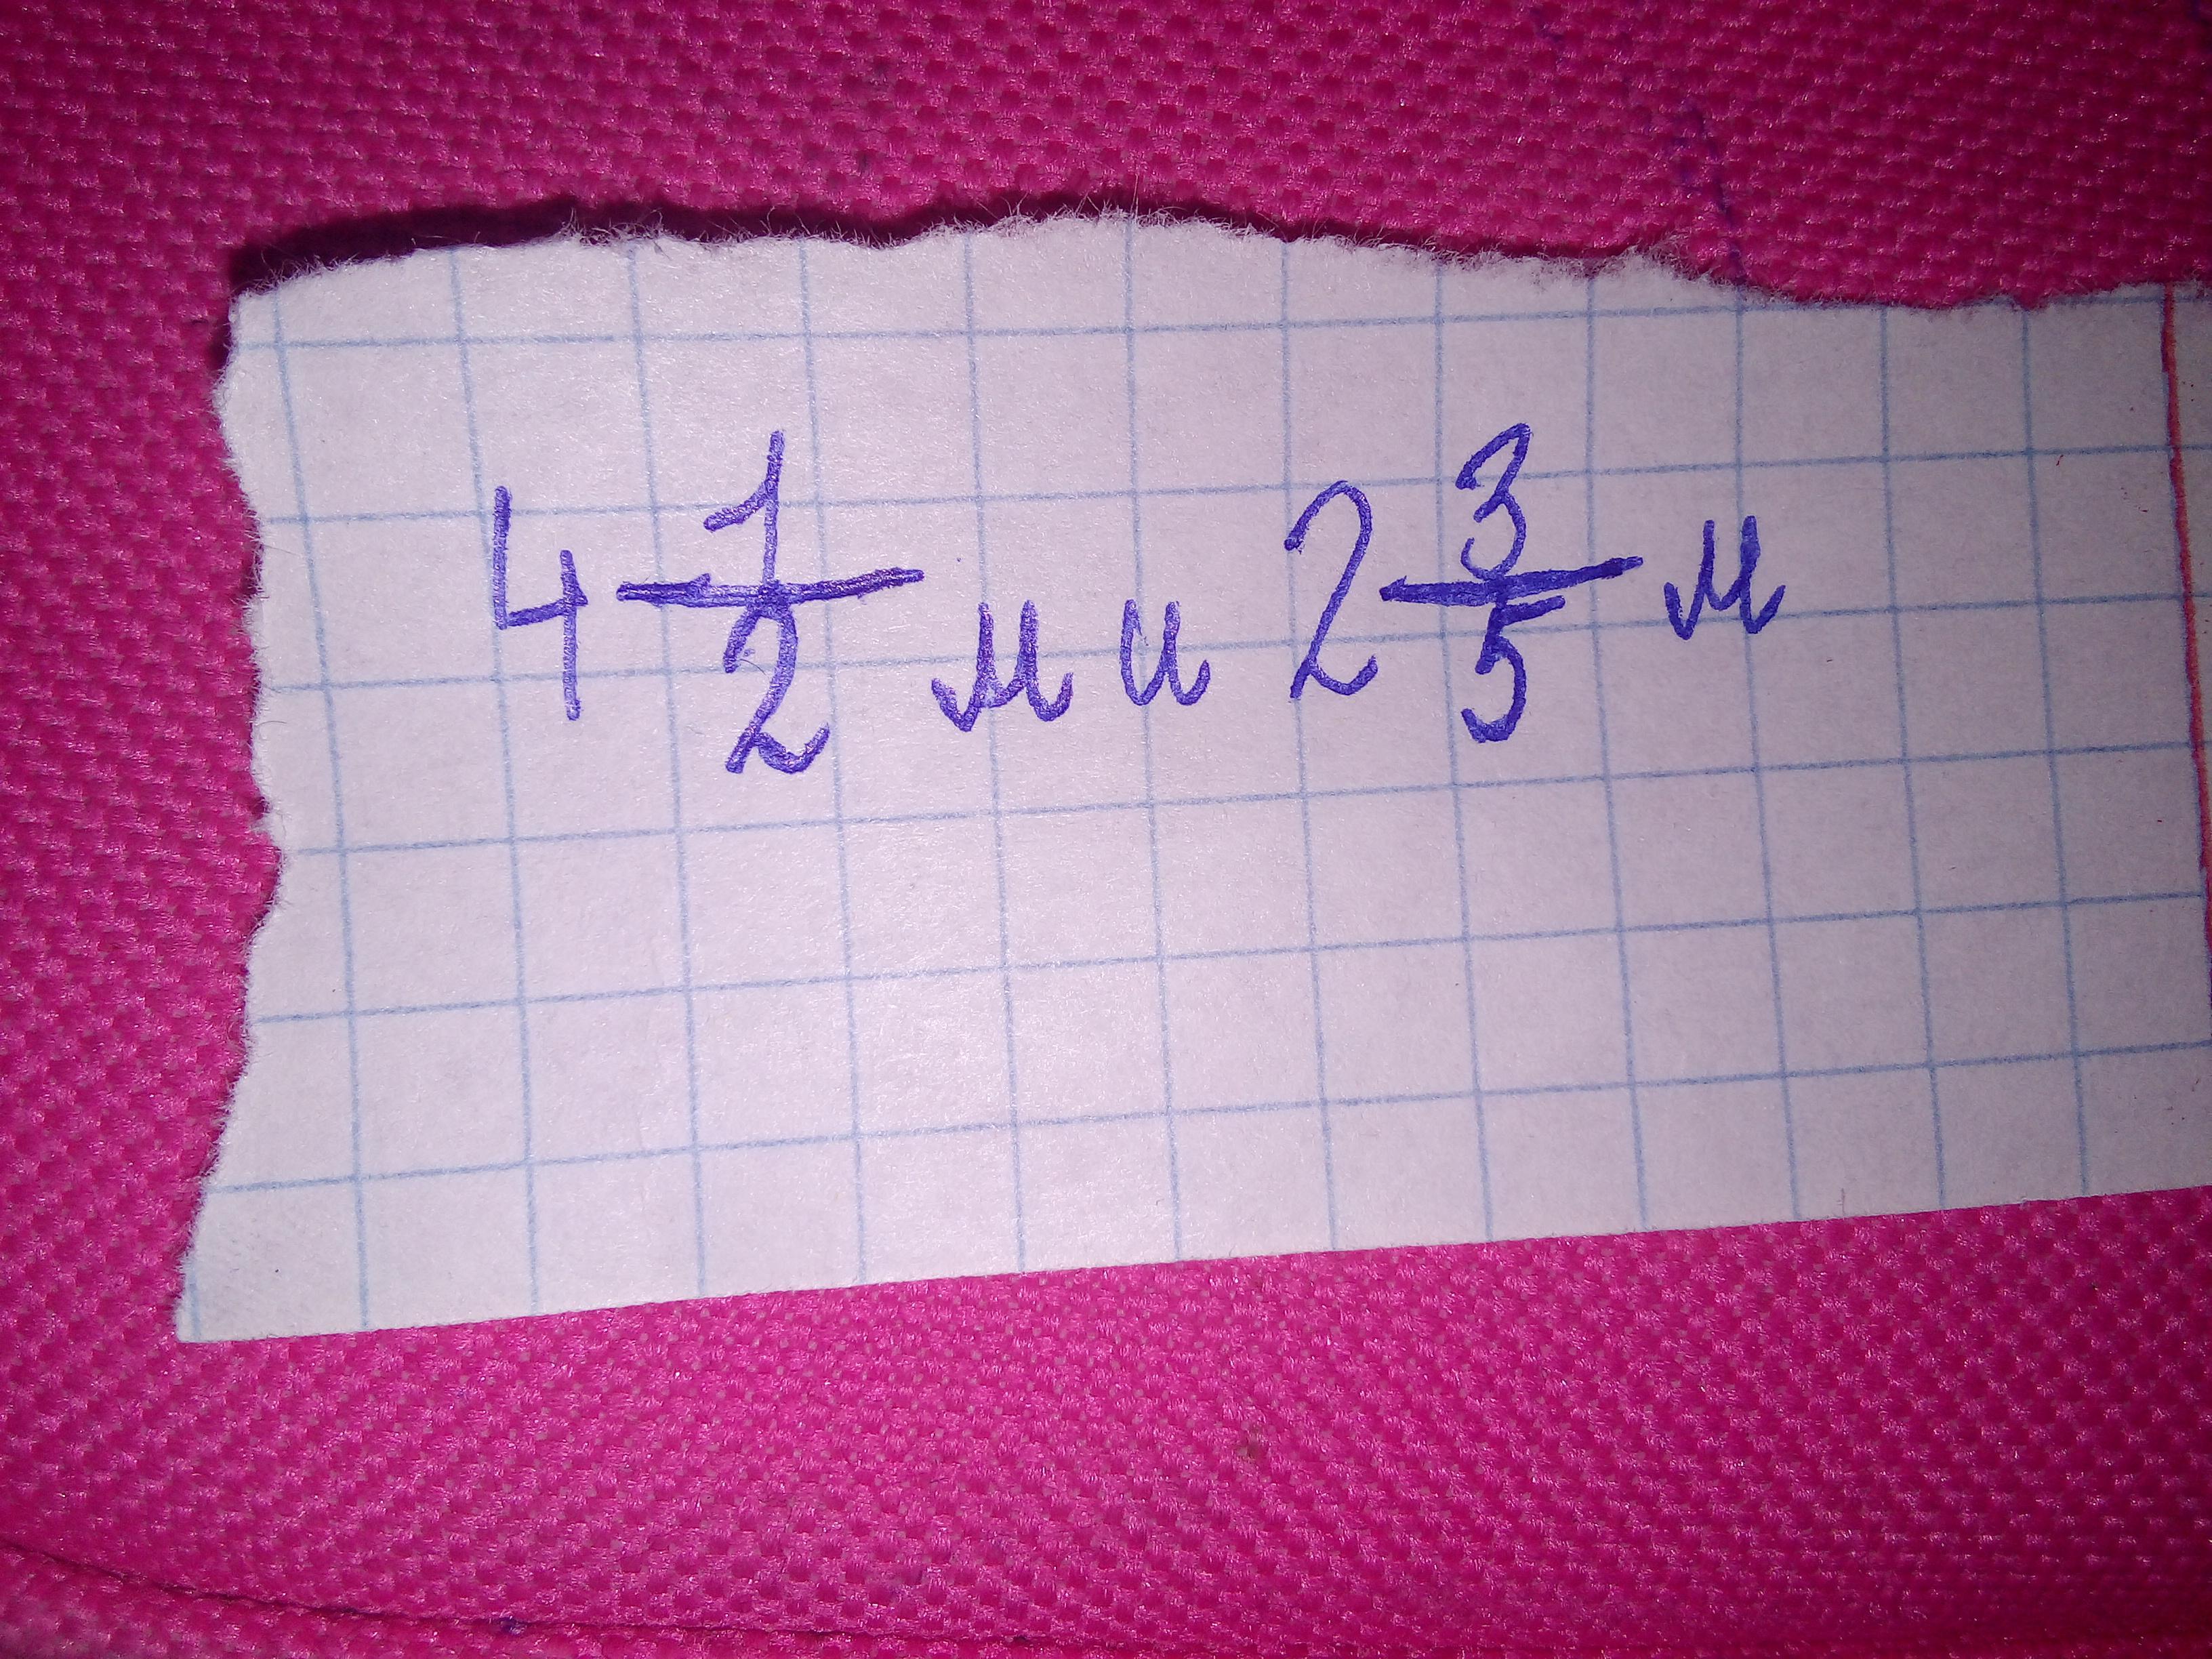 4 1/2 м и 2 3/5 м